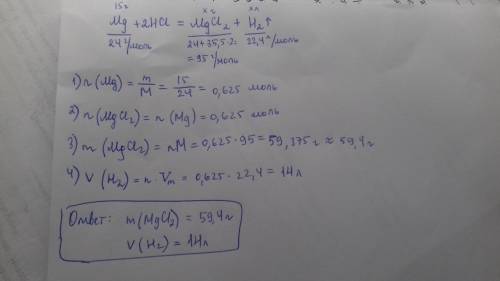 15г xг xл
Mg + 2HCl = MgCl₂ + H₂↑
24 г/моль 24+35,5·2= 22,4 л/моль
= 95 г/моль
1) n(Mg) = m/M = 15/24 = 0,625 моль
2) n(MgCl₂) = n(Mg) = 0,625 моль
3) m(MgCl₂) = nM = 0,625·95 = 59,375г ≈ 59,4г
4) V(H₂) = n·Vm = 0,625·22,4 = 14л
Ответ: m(MgCl₂) = 59,4г
V(H₂) = 14л